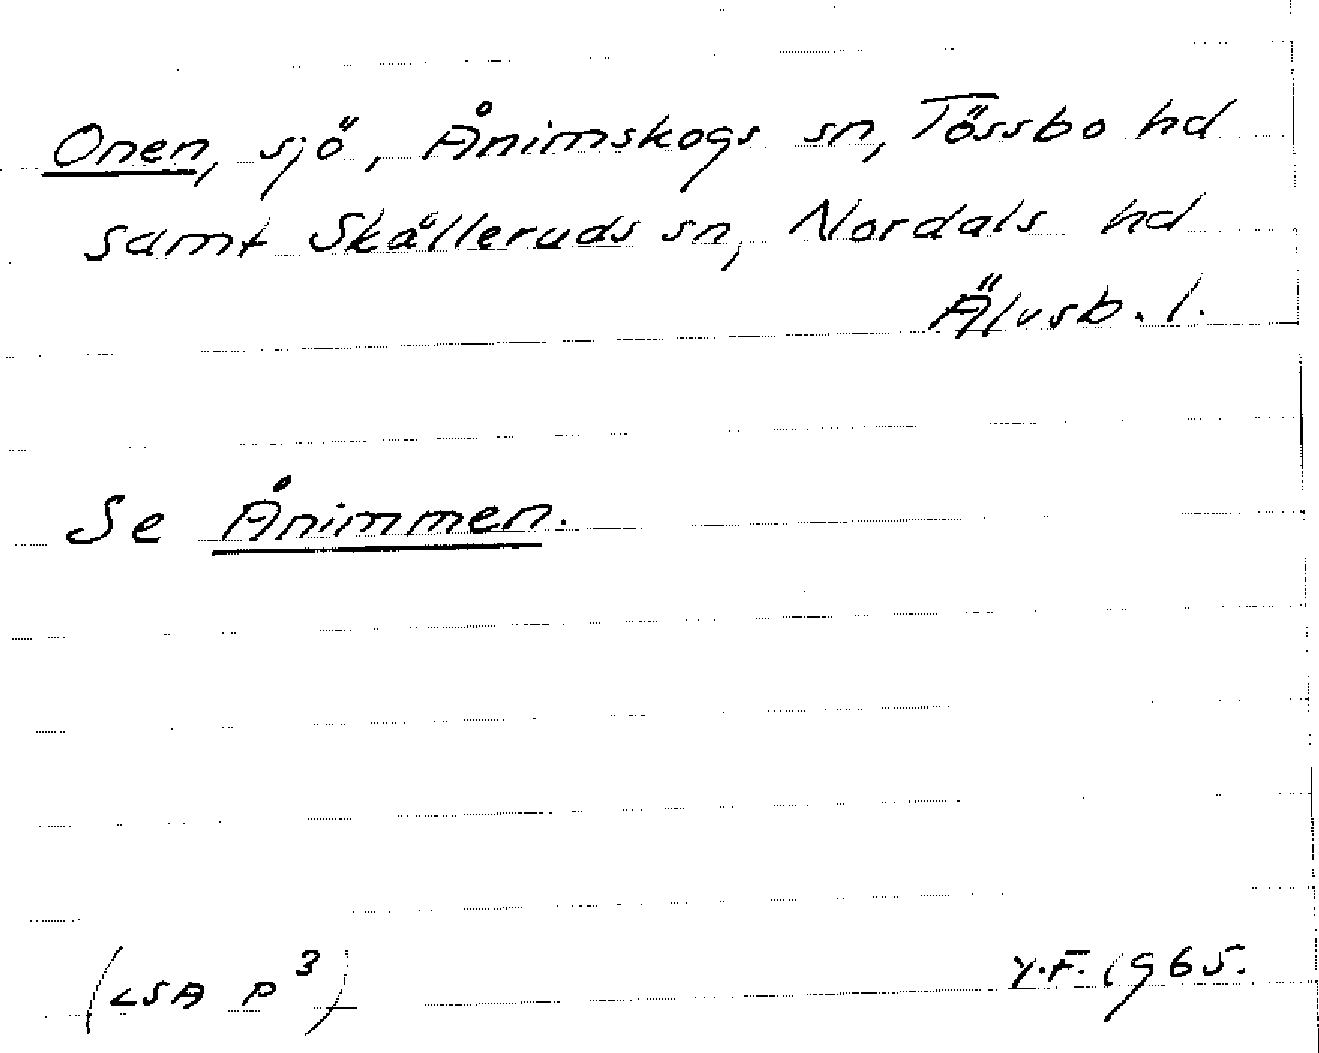 Onen, sjö, Ånimskogs sn, Tössbo hd
samt Skålleruds sn, Nordals hd
Älvsb. l.
Se Ånimmen.
(LSA P³)
Y.F. 1965.